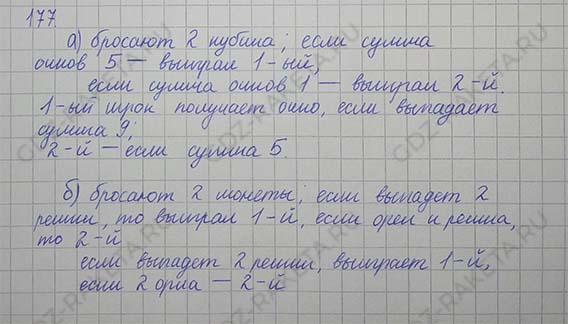 177.
а) бросают 2 кубика; если сумма
очков 5 — выиграл 1-ый,
если сумма очков 1 — выиграл 2-й.
1-ый игрок получает очко, если выпадает
сумма 9;
2-й — если сумма 5.
б) бросают 2 монеты; если выпадет 2
решки, то выиграл 1-й, если орел и решка,
то 2-й
если выпадет 2 решки, выиграет 1-й,
если 2 орла — 2-й
GDZ-RAKETA.RU
GDZ-RAKETA.RU
GDZ-RAKETA.RU
GDZ-RAKETA.RU